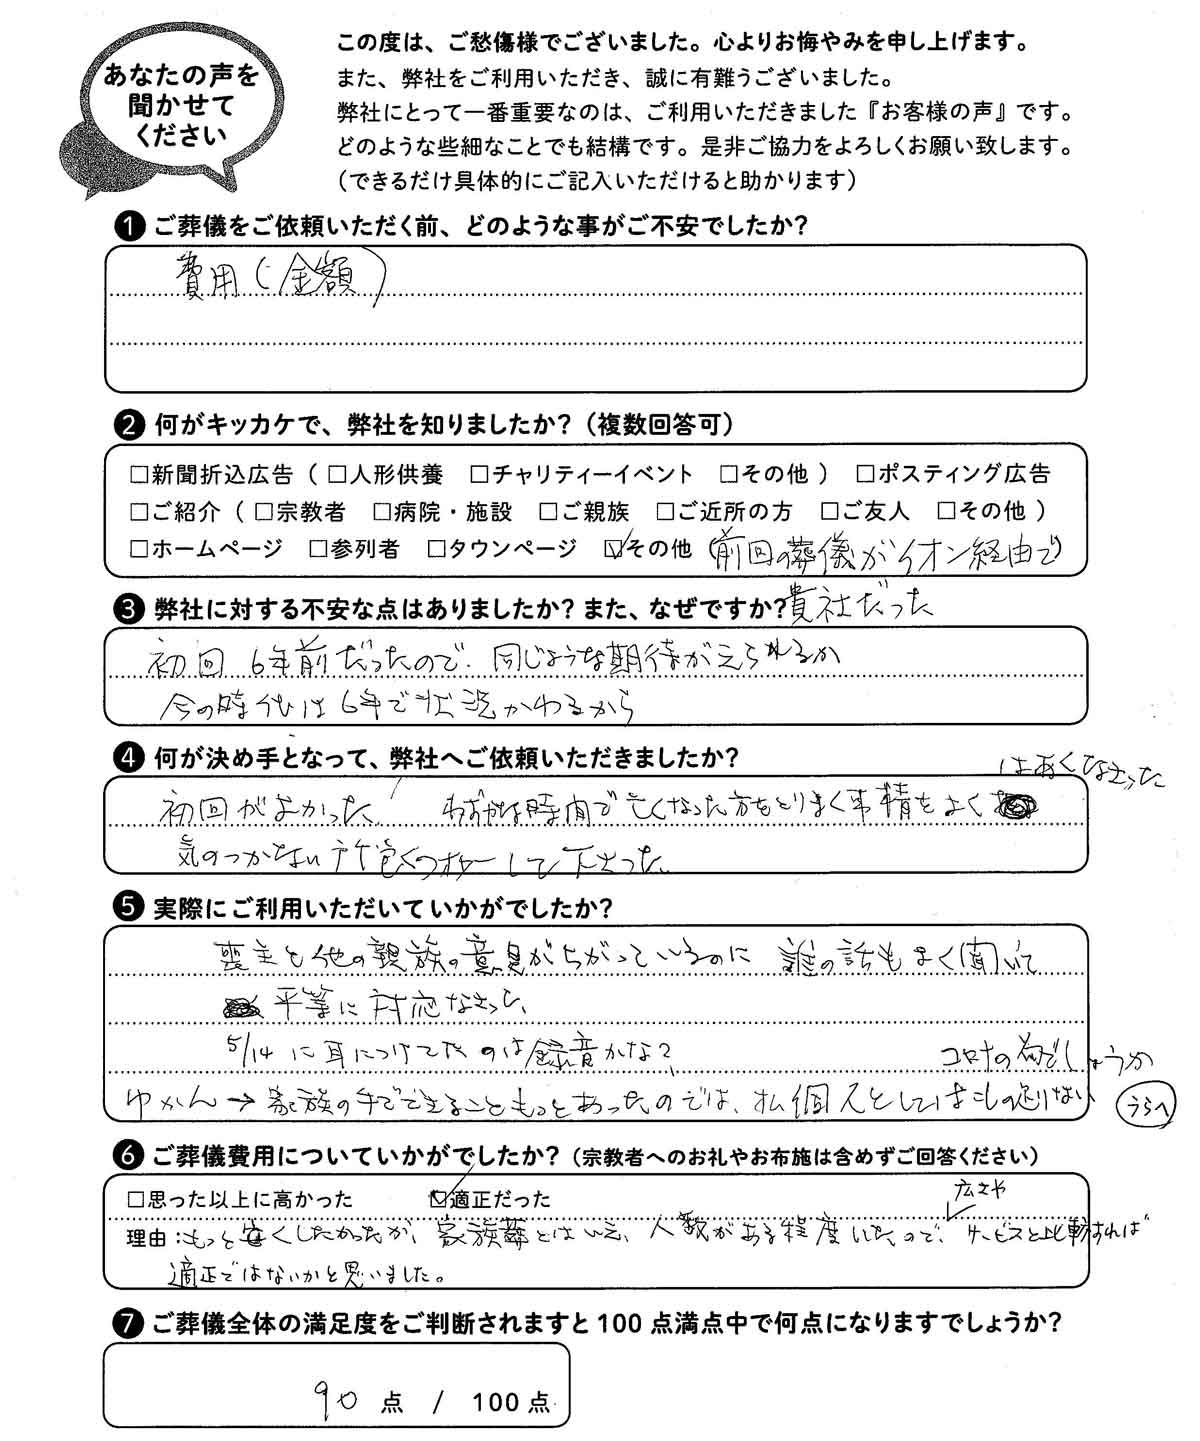 あなたの声を
聞かせて
ください
この度は、ご愁傷様でございました。心よりお悔やみを申し上げます。
また、弊社をご利用いただき、誠に有難うございました。
弊社にとって一番重要なのは、ご利用いただきました『お客様の声』です。
どのような些細なことでも結構です。是非ご協力をよろしくお願い致します。
（できるだけ具体的にご記入いただけると助かります）
❶ ご葬儀をご依頼いただく前、どのような事がご不安でしたか？
費用（金額）
❷ 何がキッカケで、弊社を知りましたか？（複数回答可）
□新聞折込広告（□人形供養 □チャリティーイベント □その他） □ポスティング広告
□ご紹介（□宗教者 □病院・施設 □ご親族 □ご近所の方 □ご友人 □その他）
□ホームページ □参列者 □タウンページ ☑その他（前回の葬儀がイオン経由で）
貴社だった
❸ 弊社に対する不安な点はありましたか？また、なぜですか？
初回 6年前だったので、同じような期待がえられるか
今の時代は6年で状況かわるから
❹ 何が決め手となって、弊社へご依頼いただきましたか？
初回がよかった わずかな時間で亡くなった方をとりまく事情をよく
はあくなさった
気のつかない所まで フォローして下さった。
❺ 実際にご利用いただいていかがでしたか？
喪主と他の親族の意見がちがっているのに 誰の話もよく聞いて
平等に対応なさった。
5/14に耳につけてたのは録音かな？ コロナの為でしょうか
ゆかん→家族の手でできることもっとあったのでは、私個人としては心の
うらへ
❻ ご葬儀費用についていかがでしたか？（宗教者へのお礼やお布施は含めずご回答ください）
□思った以上に高かった ☑適正だった
理由：もっと安くしたかったが、家族葬とはいえ、人数がある程度いたので、広さやサービスと比較すれば
適正ではないかと思いました。
❼ ご葬儀全体の満足度をご判断されますと100点満点中で何点になりますでしょうか？
90 点 / 100点